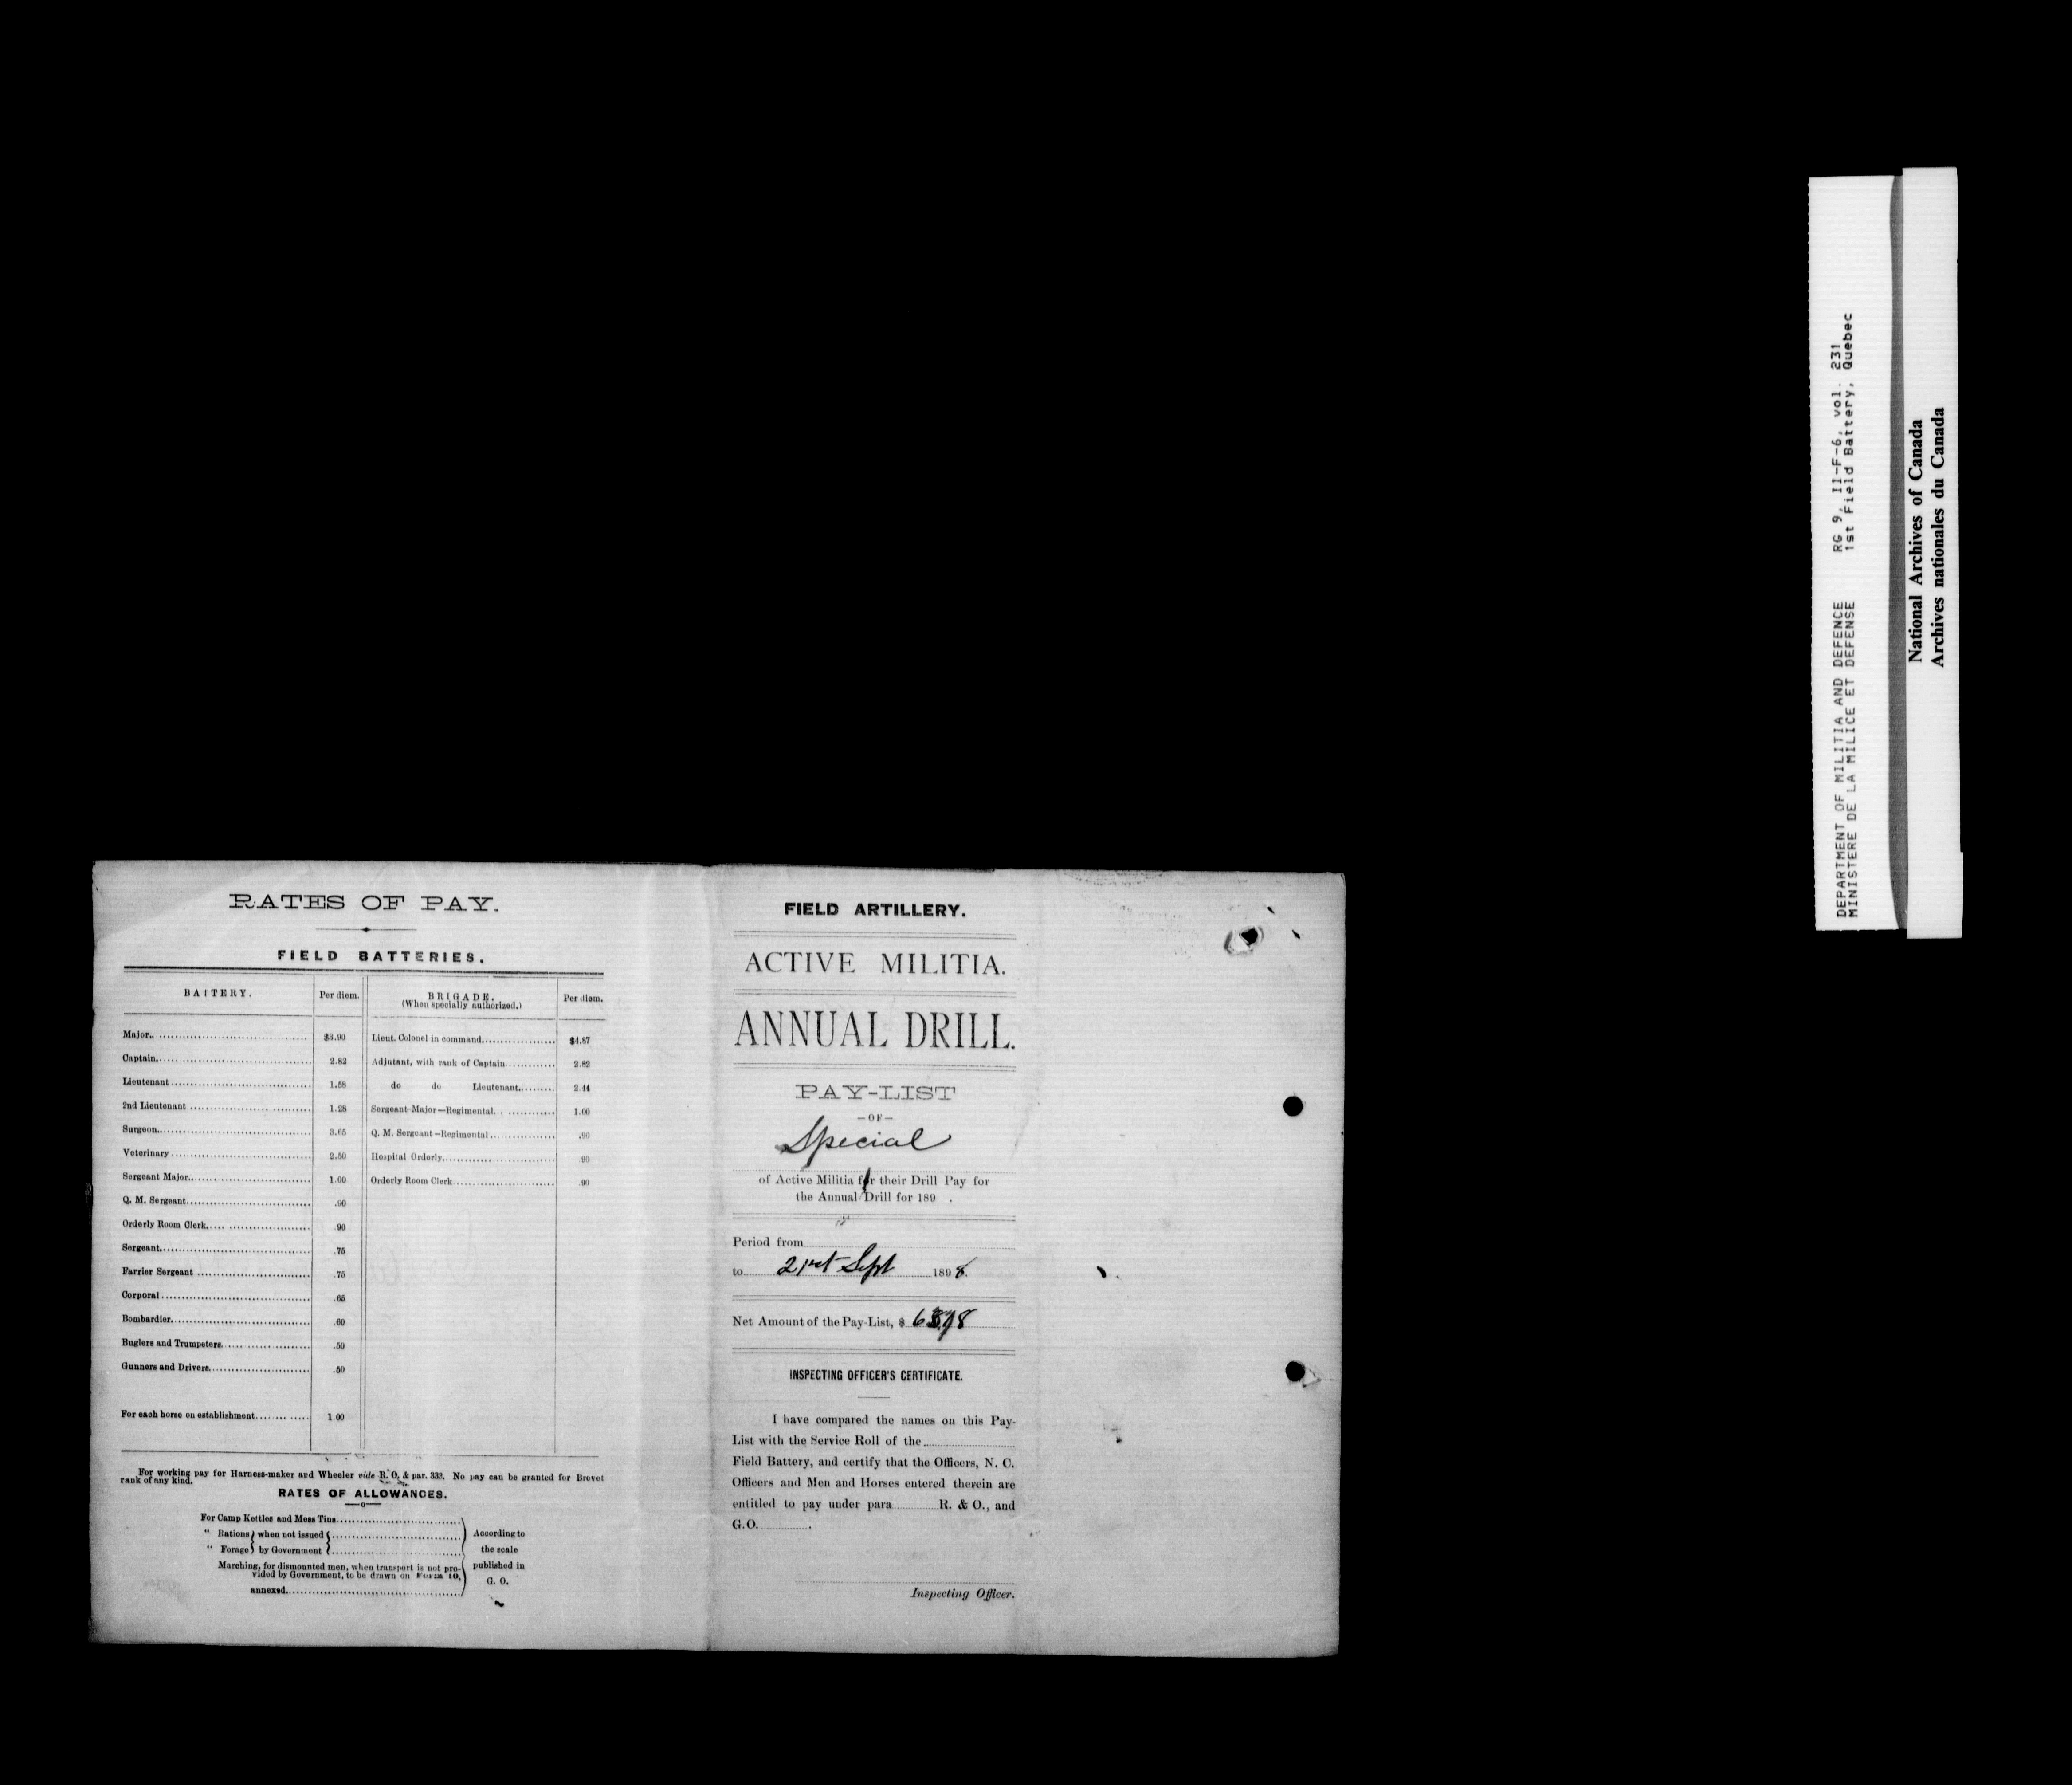 RATES OF PAY.
FIELD BATTERIES.
BATTERY. Per diem. BRIGADE. (When specially authorized.) Per diem.
Major. $3.90 Lieut. Colonel in command $4.87
Captain. 2.82 Adjutant, with rank of Captain 2.82
Lieutenant 1.58 do do Lieutenant. 2.44
2nd Lieutenant 1.28 Sergeant-Major—Regimental 1.00
Surgeon. 3.65 Q. M. Sergeant—Regimental .90
Veterinary 2.50 Hospital Orderly. 90
Sergeant Major. 1.00 Orderly Room Clerk .90
Q. M. Sergeant. .90
Orderly Room Clerk. .90
Sergeant. .75
Farrier Sergeant .75
Corporal .65
Bombardier. .60
Buglers and Trumpeters. .50
Gunners and Drivers. .50
For each horse on establishment 1.00
For working pay for Harness-maker and Wheeler vide R. O. & par. 333. No pay can be granted for Brevet
rank of any kind.
RATES OF ALLOWANCES.
For Camp Kettles and Mess Tins
" Rations } when not issued { According to
" Forage } by Government { the scale
Marching, for dismounted men, when transport is not pro- published in
vided by Government, to be drawn on Form 10, G. O.
annexed.
FIELD ARTILLERY.
ACTIVE MILITIA.
ANNUAL DRILL.
PAY-LIST
—OF—
Special
of Active Militia for their Drill Pay for
the Annual Drill for 189 .
Period from
to 21st Sept 1898.
Net Amount of the Pay-List, $
INSPECTING OFFICER'S CERTIFICATE.
I have compared the names on this Pay-
List with the Service Roll of the
Field Battery, and certify that the Officers, N. C.
Officers and Men and Horses entered therein are
entitled to pay under para R. & O., and
G.O. .
Inspecting Officer.
DEPARTMENT OF MILITIA AND DEFENCE RG 9, II-F-6, vol. 231
MINISTERE DE LA MILICE ET DEFENSE 1st Field Battery, Quebec
National Archives of Canada
Archives nationales du Canada